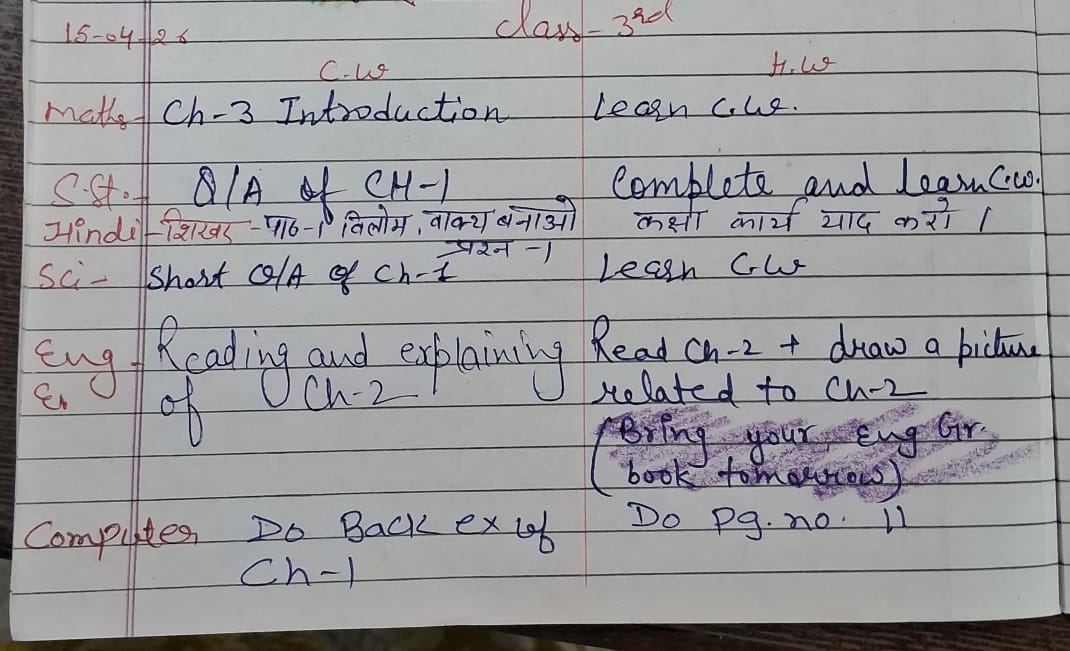 15-04-26 Class - 3rd
C.W H.W
Maths - Ch-3 Introduction Learn C.W.
S.St. - Q/A of CH-1 Complete and learn C.w.
Hindi - शिखर - पाठ-1 विलोम, वाक्य बनाओ कक्षा कार्य याद करो ।
प्रश्न -1
Sci - Short Q/A of Ch-1 Learn C.W
Eng - Reading and explaining Read Ch-2 + draw a picture
of Ch-2 related to Ch-2
(Bring your Eng Gr.
book tomorrow)
Computer Do Back ex of Do pg. no. 11
Ch-1